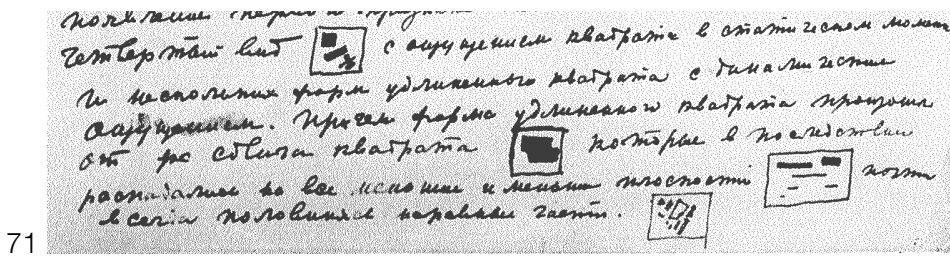 появление
четвертый вид с ощущением квадрата в статическом момен
и нескольких форм удлиненного квадрата с динамическим
ощущением. Причем форма удлиненного квадрата произошла
от сдвига квадрата которые в последствии
распадались на все меньшие и меньшие плоскости почти
в половинные неравные части.
71